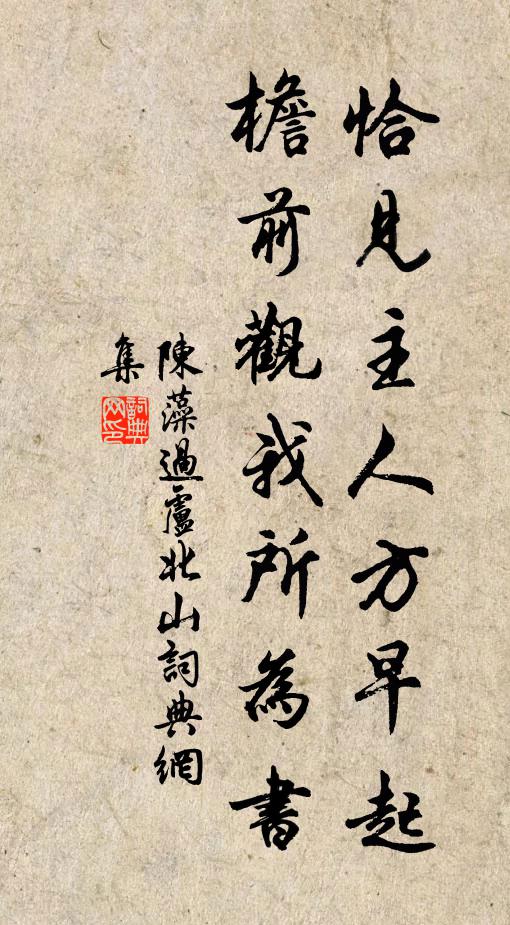 恰見主人方早起
檐前觀我所為書
陳藻過盧北山詞典網
集
詞典網印